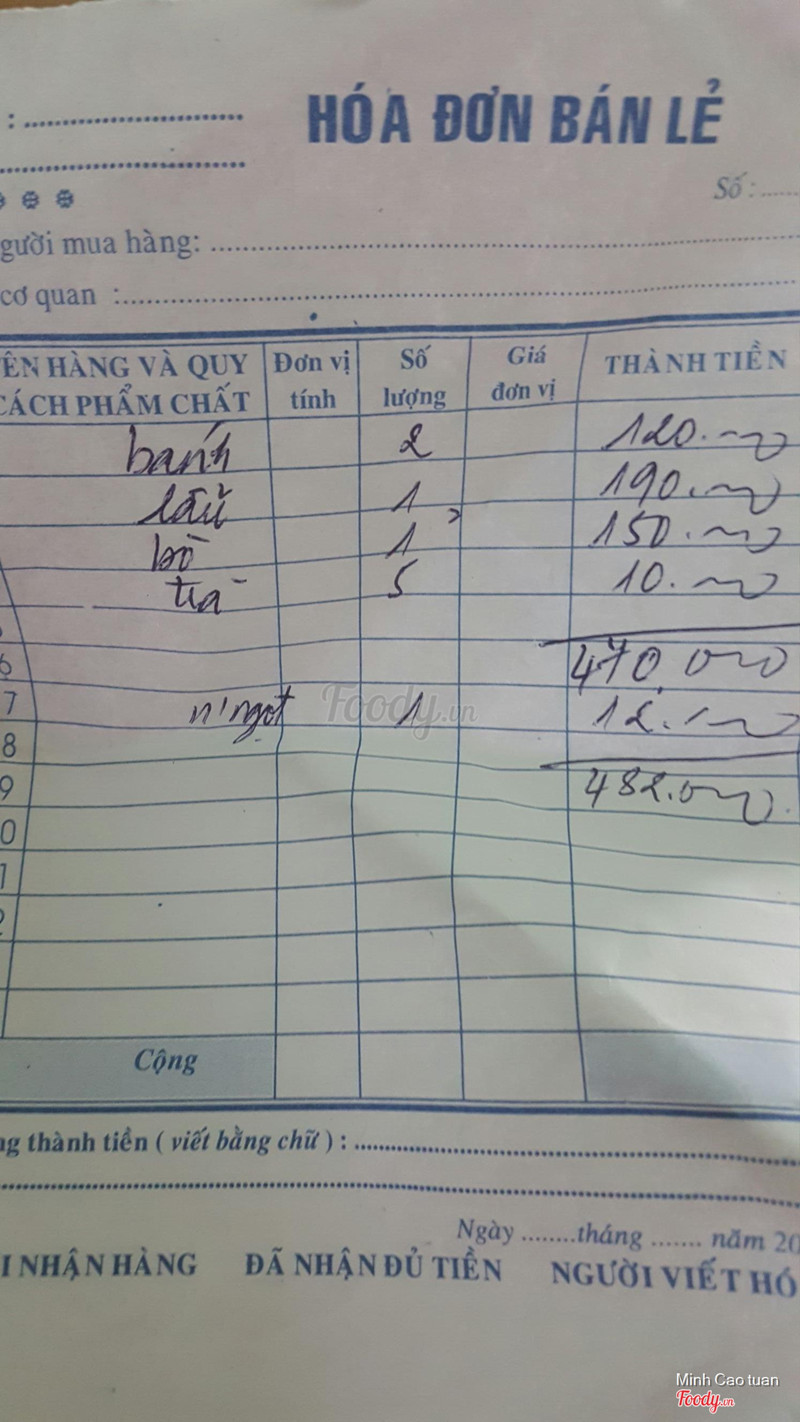 : ........................
HÓA ĐƠN BÁN LẺ
Số : ......
gười mua hàng: ........................
cơ quan :........................
ÊN HÀNG VÀ QUY CÁCH PHẨM CHẤT Đơn vị tính Số lượng Giá đơn vị THÀNH TIỀN
bánh 2 120.000
lẩu 1 190.000
bò 1 150.000
trà 5 10.000
6 470.000
7 n'ngọt 1 12.000
8
9 482.000
0
1
2
Cộng
ng thành tiền ( viết bằng chữ ) : ........................
Ngày ........tháng ....... năm 20
I NHẬN HÀNG ĐÃ NHẬN ĐỦ TIỀN NGƯỜI VIẾT HÓ
Foody.vn
Minh Cao tuan
Foody.vn